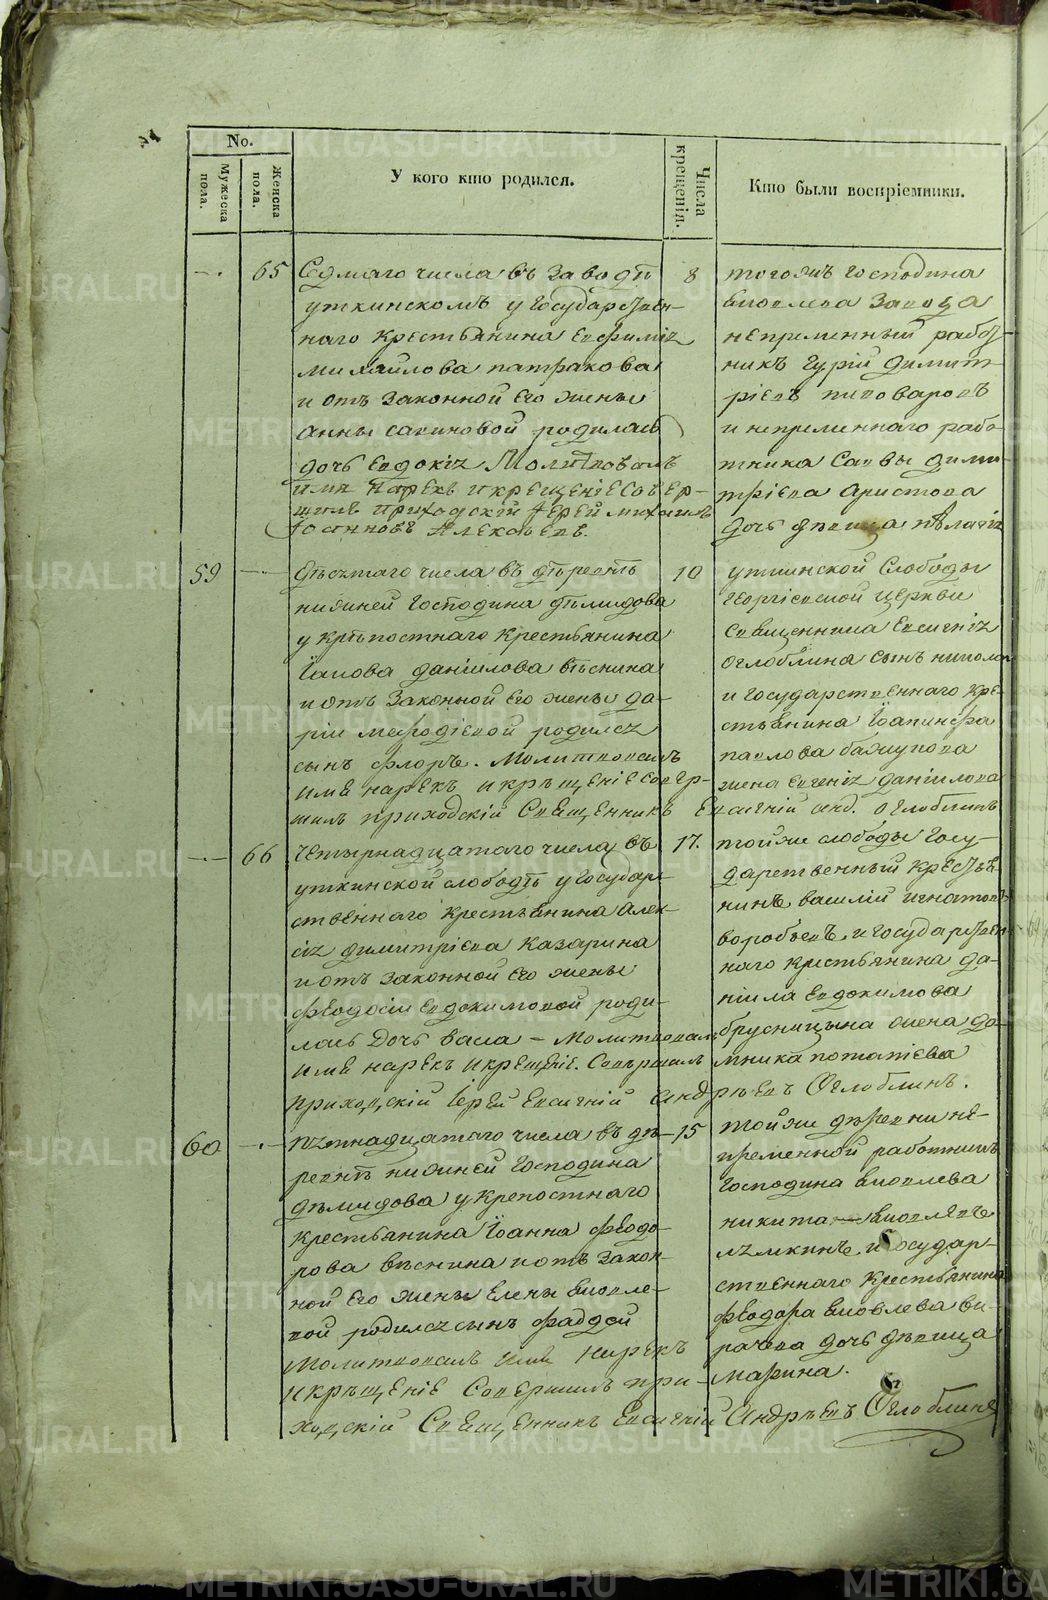 No.
Мужеска пола.
Женска пола.
У кого кто родился.
Числа крещенія.
Кто были воспріемники.
65
Седмаго числа въ заводѣ
уткинскомъ у Государствен-
наго крестьянина Евфимія
михайлова патракова
и отъ законной его жены
анны савиновой родилась
дочь Евдокія Молитвовалъ
имя нарекъ и крещеніе совер-
шилъ приходскій Іерей михаилъ
Іоанновъ Алексѣевъ.
8
тогожъ Господина
Яковлева завода
непременный работ-
никъ гурій димит-
ріевъ пивоваровъ
и непременнаго рабо-
тника Саввы дими-
тріева аристова
дочь дѣвица пѣлагія
59
Десятаго числа въ деревнѣ
нижней Господина демидова
у крѣпостнаго крестьянина
Іакова даніилова вѣснина
и отъ законной его жены да-
ріи мефодіевой родился
сынъ флоръ. Молитвовалъ
имя нарекъ и крѣщеніе совер-
шилъ приходскій Священникъ Евсигній анд. оглоблинъ
10
уткинской Слободы
георгіевской церкви
священника Евсигнія
оглоблина сынъ николай
и государственнаго кре-
стьянина Іоакинфа
павлова
жена Евгенія даніилова
66
четырнадцатаго числа въ
уткинской слободѣ у государ-
ственнаго крестьянина алек-
сія димитріева казарина
и отъ законной его жены
феодосіи Евдокимовой роди-
лась дочь васса - молитвовалъ
имя нарекъ и крещеніе. Совершилъ
приходскій Іерей Евсигній андрѣевъ Оглоблинъ.
17.
тойже слободы Госу-
дарственный крестья-
нинъ василій игнатовъ
воробьевъ, и государствен-
наго крестьянина да-
ніила Евдокимова
брусницына жена до-
мника потапіева
60
пятнадцатаго числа въ де-
ревнѣ нижней господина
демидова у крепостнаго
крестьянина Іоанна феодо-
рова вѣснина и отъ закон-
ной его жены Елены яковле-
вой родился сынъ фаддей
молитвовалъ имя нарекъ
и крѣщеніе Совершилъ при-
ходскій Священникъ Евсигній Андрѣевъ Оглоблинъ
15
тойже деревни не-
пременной работникъ
господина яковлева
никита яковлевъ
лямкинъ и Государ-
ственнаго крестьянина
феодора яковлева ви-
рачева дочь дѣвица
марина.
METRIKI.GASU-URAL.RU